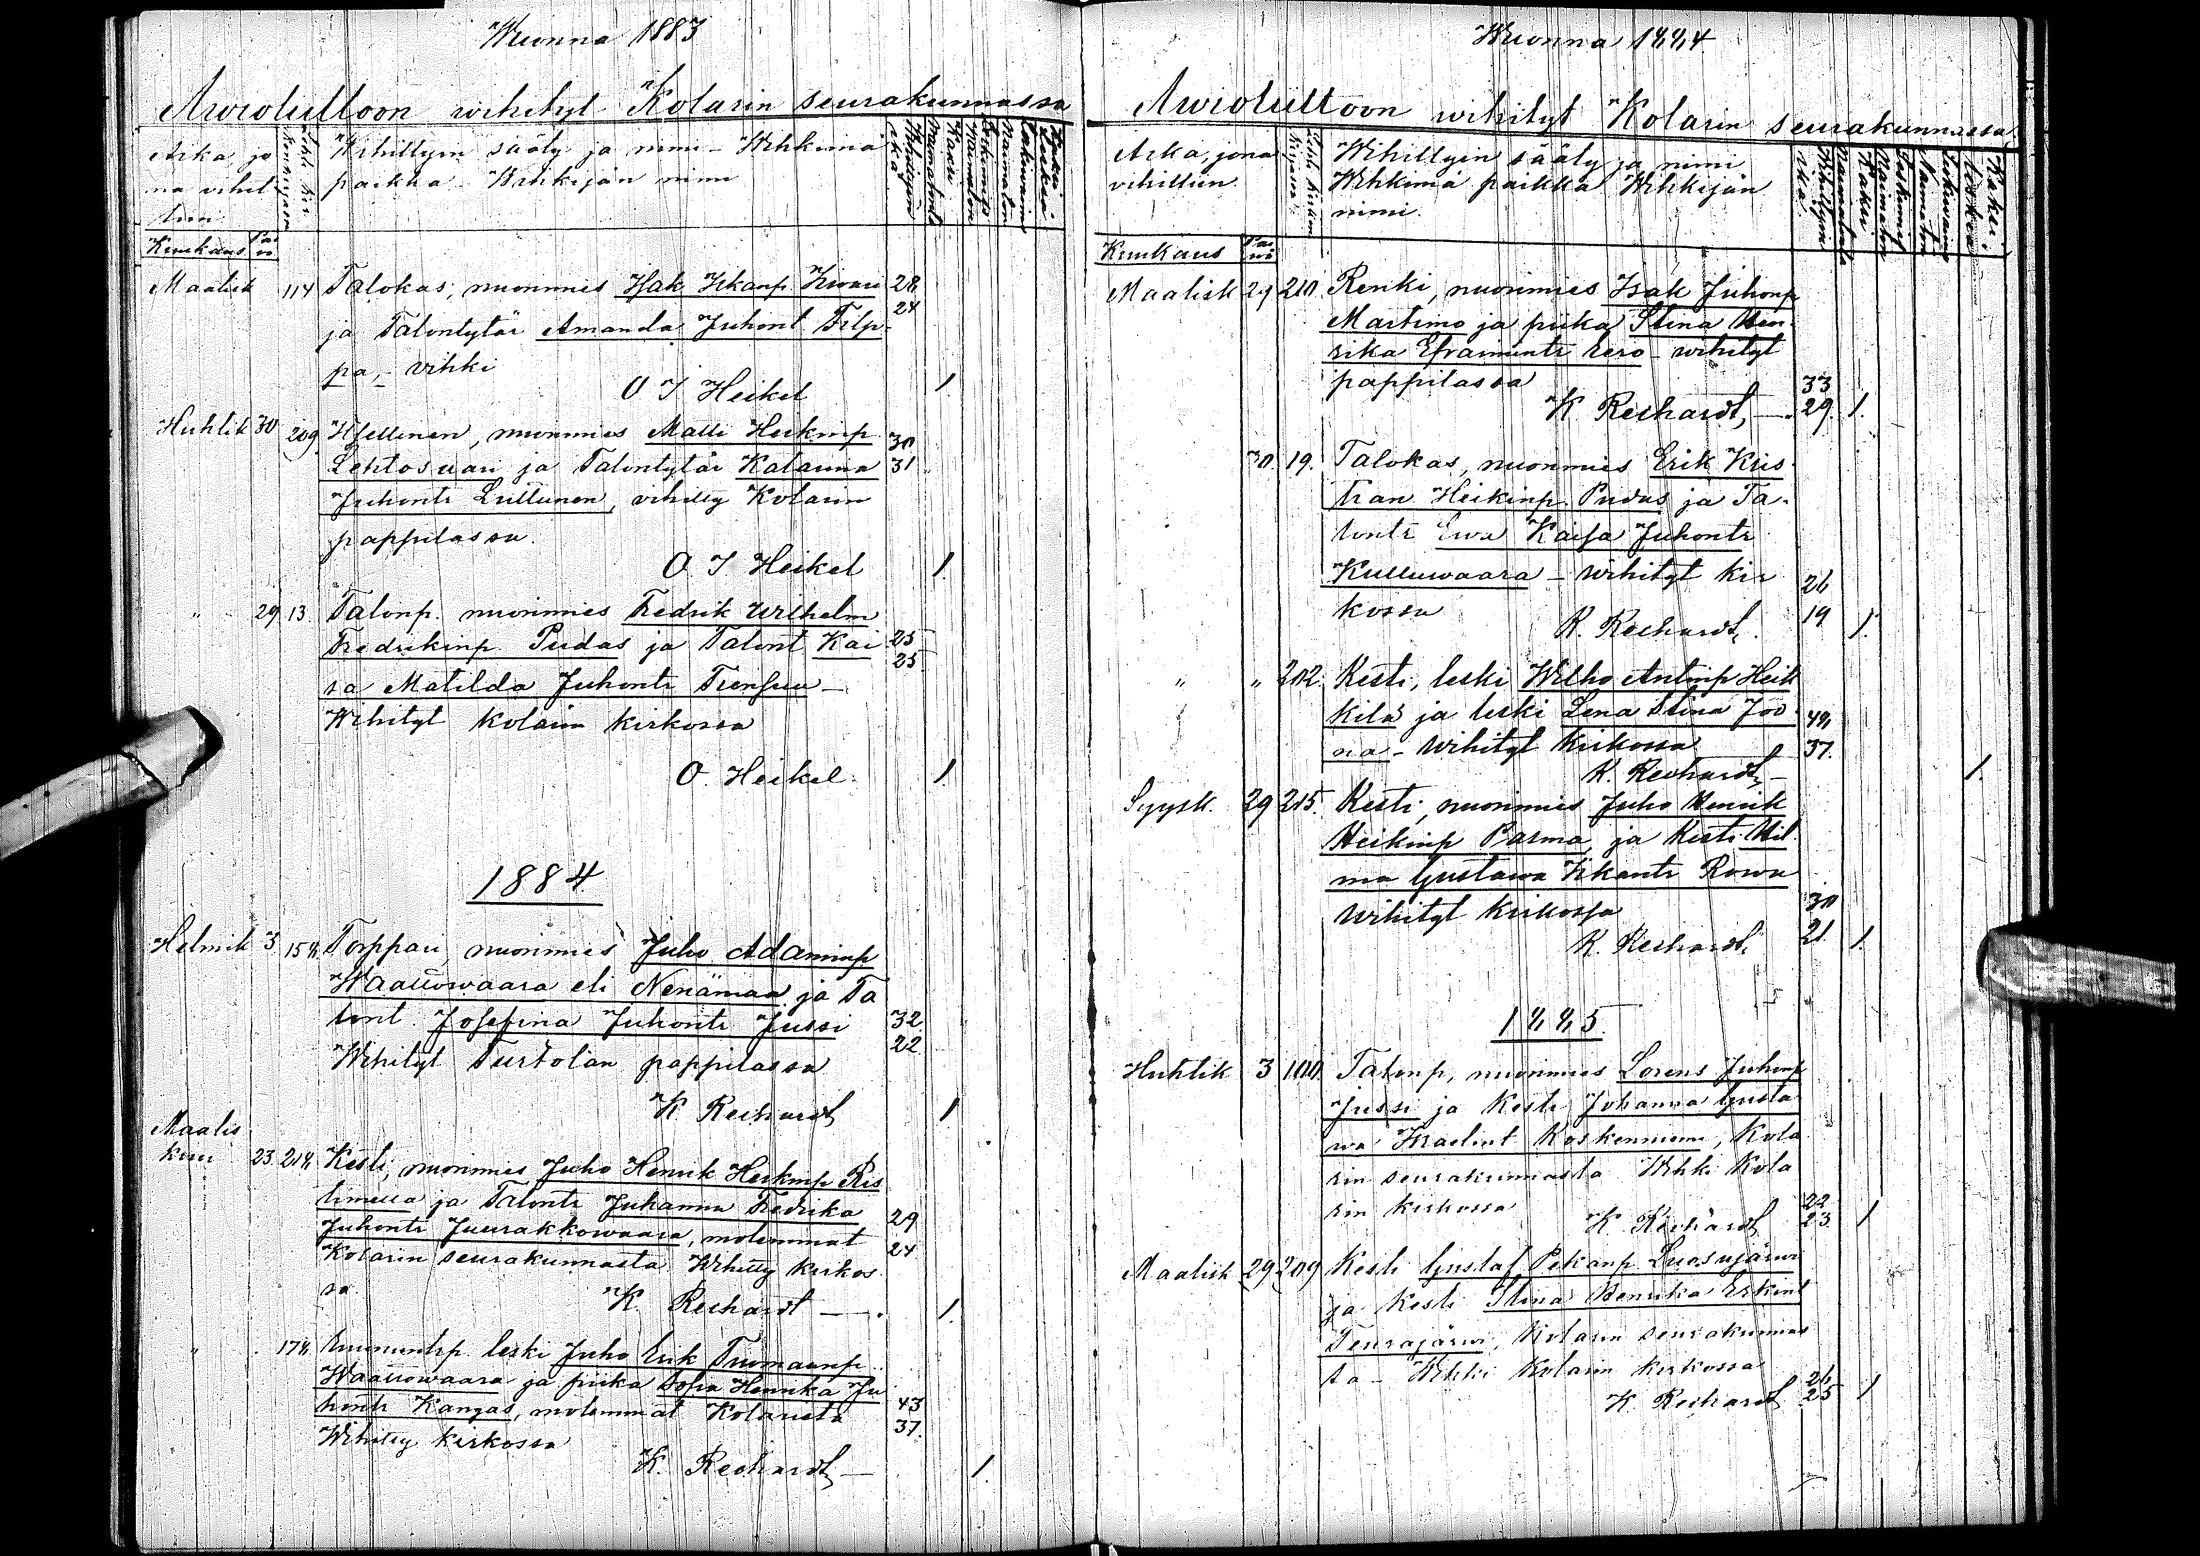 Wuonna 1883
Awioliittoon wihityt Kolarin seurakunnassa
Aika, jo
na vihit
tiin
Wihittyin sääty ja nimi - Wihkimä
paikka - Wihkijän nimi
Kuukaus Päi
vä
Maalisk 114 Talokas, nuorimies Isak Iskanp Kivari 28
ja Talontytär Amanda Juhont Filp- 24
pa, - vihki
O I Heikel 1.
Huhtik 30 209 nuorimies Matti Heikinp 30
Lehtosaari ja Talontytär Katarina 31
Juhontr Luttunen, vihitty Kolarin
pappilassa.
O. I Heikel 1.
" 29 13. Talonp. nuorimies Fredrik Wilhelm
Fredrikinp. Pudas ja Talont Kai 25
25
sa Matilda Juhontr
Wihityt Kolarin kirkossa
O. Heikel. 1.
1884
Helmik 3 158 Torppari, nuorimies Juho Adaminp
Waattowaara eli Nenämaa ja Ta
lont. Josefina Juhontr Jussi 32
22
Wihityt Turtolan pappilassa
K Rechardt 1
Maalis
kuu 23 218 Kesti, nuorimies Juho Henrik Heikinp Ris
timella ja Talontr Juhanna Fredrika 29
Juhontr Juurakkowaara, molemmat 24
Kolarin seurakunnasta Wihitty kirkos
sa.
K. Rechardt 1.
" 178 leski Juho Erik Tuomaanp
Waattowaara ja piika Sofia Henrika Ju 43
hontr Kangas, molemmat Kolarista 37.
Wihitty kirkossa
K. Rechardt 1.
Wuonna 1884
Awioliittoon wihityt Kolarin seurakunnassa
Aika, jona
vihittiin.
Wihittyin sääty ja nimi
Wihkimä paikka Wihkijän
nimi.
Kuukaus Päi
wä
Maalisk 29 210. Renki, nuorimies Isak Juhonp
Martimo ja piika Stina Hen-
rika Efraimintr Eero - wihityt
pappilassa 33
K Rechardt, 29. 1.
30. 19. Talokas, nuorimies Erik Kris
tian Heikinp. Pudas ja Ta-
lontr Ewa Kaisa Juhontr
Kulluwaara - wihityt kir 26
kossa 19
K. Rechardt. 1.
" " 202. Kesti, leski Wilho Antinp Heik
kilä ja leski Lena Stina Joo 48
na - wihityt kirkossa 37.
K. Rechardt 1.
Syysk. 29 215. Kesti, nuorimies Juho Henrik
Heikinp Parma, ja Kesti Hil
ma Gustawa Iskantr Rowa
wihityt kirkossa 30
K. Rechardt. 21. 1.
1885.
Huhtik 3 100. Talonp, nuorimies Lorens Juhonp
Jussi ja Kesti Johanna Gusta
wa Israelint Koskenniemi, Kola
rin seurakunnasta Wihki Kola
rin kirkossa 22
K Rechardt 23 1
Maalisk 29 209 Kesti Gustaf Pekanp Luosujärwi
ja Kesti Stina Henrika Erkint
Teurajärwi, Kolarin seurakunnas
ta - Wihki Kolarin kirkossa
26
K Rechardt 25 1